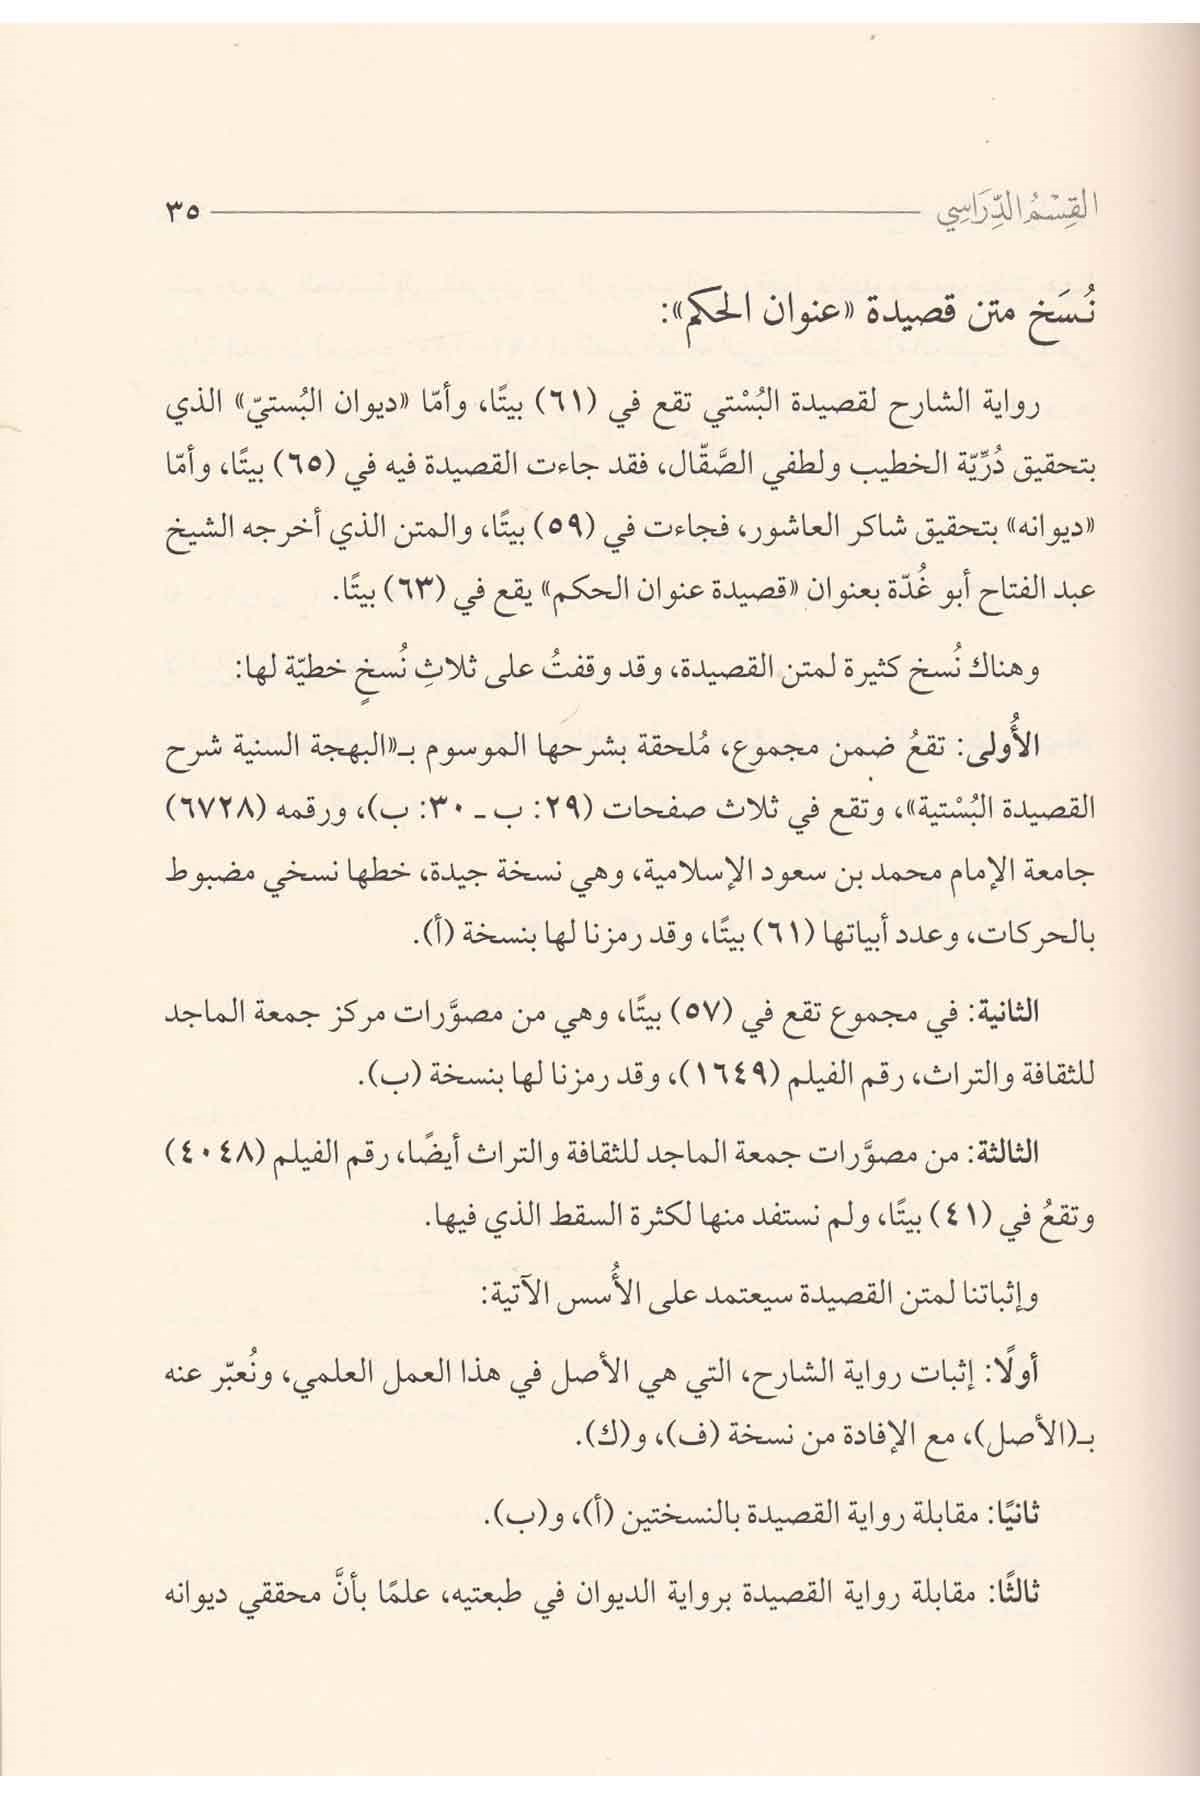 القِسْمُ الدِّرَاسِي ٣٥
نُسَخ متن قصيدة «عنوان الحكم»:
رواية الشارح لقصيدة البُسْتي تقع في (٦١) بيتًا، وأمّا «ديوان البُستيّ» الذي
بتحقيق دُرِّيّة الخطيب ولطفي الصَّقّال، فقد جاءت القصيدة فيه في (٦٥) بيتًا، وأمّا
«ديوانه» بتحقيق شاكر العاشور، فجاءت في (٥٩) بيتًا، والمتن الذي أخرجه الشيخ
عبد الفتاح أبو غُدّة بعنوان «قصيدة عنوان الحكم» يقع في (٦٣) بيتًا.
وهناك نُسخ كثيرة لمتن القصيدة، وقد وقفتُ على ثلاثِ نُسخٍ خطيّة لها:
الأُولى: تقعُ ضمن مجموع، مُلحقة بشرحها الموسوم بـ«البهجة السنية شرح
القصيدة البُسْتية»، وتقع في ثلاث صفحات (٢٩: ب ـ ٣٠: ب)، ورقمه (٦٧٢٨)
جامعة الإمام محمد بن سعود الإسلامية، وهي نسخة جيدة، خطها نسخي مضبوط
بالحركات، وعدد أبياتها (٦١) بيتًا، وقد رمزنا لها بنسخة (أ).
الثانية: في مجموع تقع في (٥٧) بيتًا، وهي من مصوَّرات مركز جمعة الماجد
للثقافة والتراث، رقم الفيلم (١٦٤٩)، وقد رمزنا لها بنسخة (ب).
الثالثة: من مصوَّرات جمعة الماجد للثقافة والتراث أيضًا، رقم الفيلم (٤٠٤٨)
وتقعُ في (٤١) بيتًا، ولم نستفد منها لكثرة السقط الذي فيها.
وإثباتنا لمتن القصيدة سيعتمد على الأُسس الآتية:
أولًا: إثبات رواية الشارح، التي هي الأصل في هذا العمل العلمي، ونُعبّر عنه
بـ(الأصل)، مع الإفادة من نسخة (ف)، و(ك).
ثانيًا: مقابلة رواية القصيدة بالنسختين (أ)، و(ب).
ثالثًا: مقابلة رواية القصيدة برواية الديوان في طبعتيه، علمًا بأنَّ محققي ديوانه